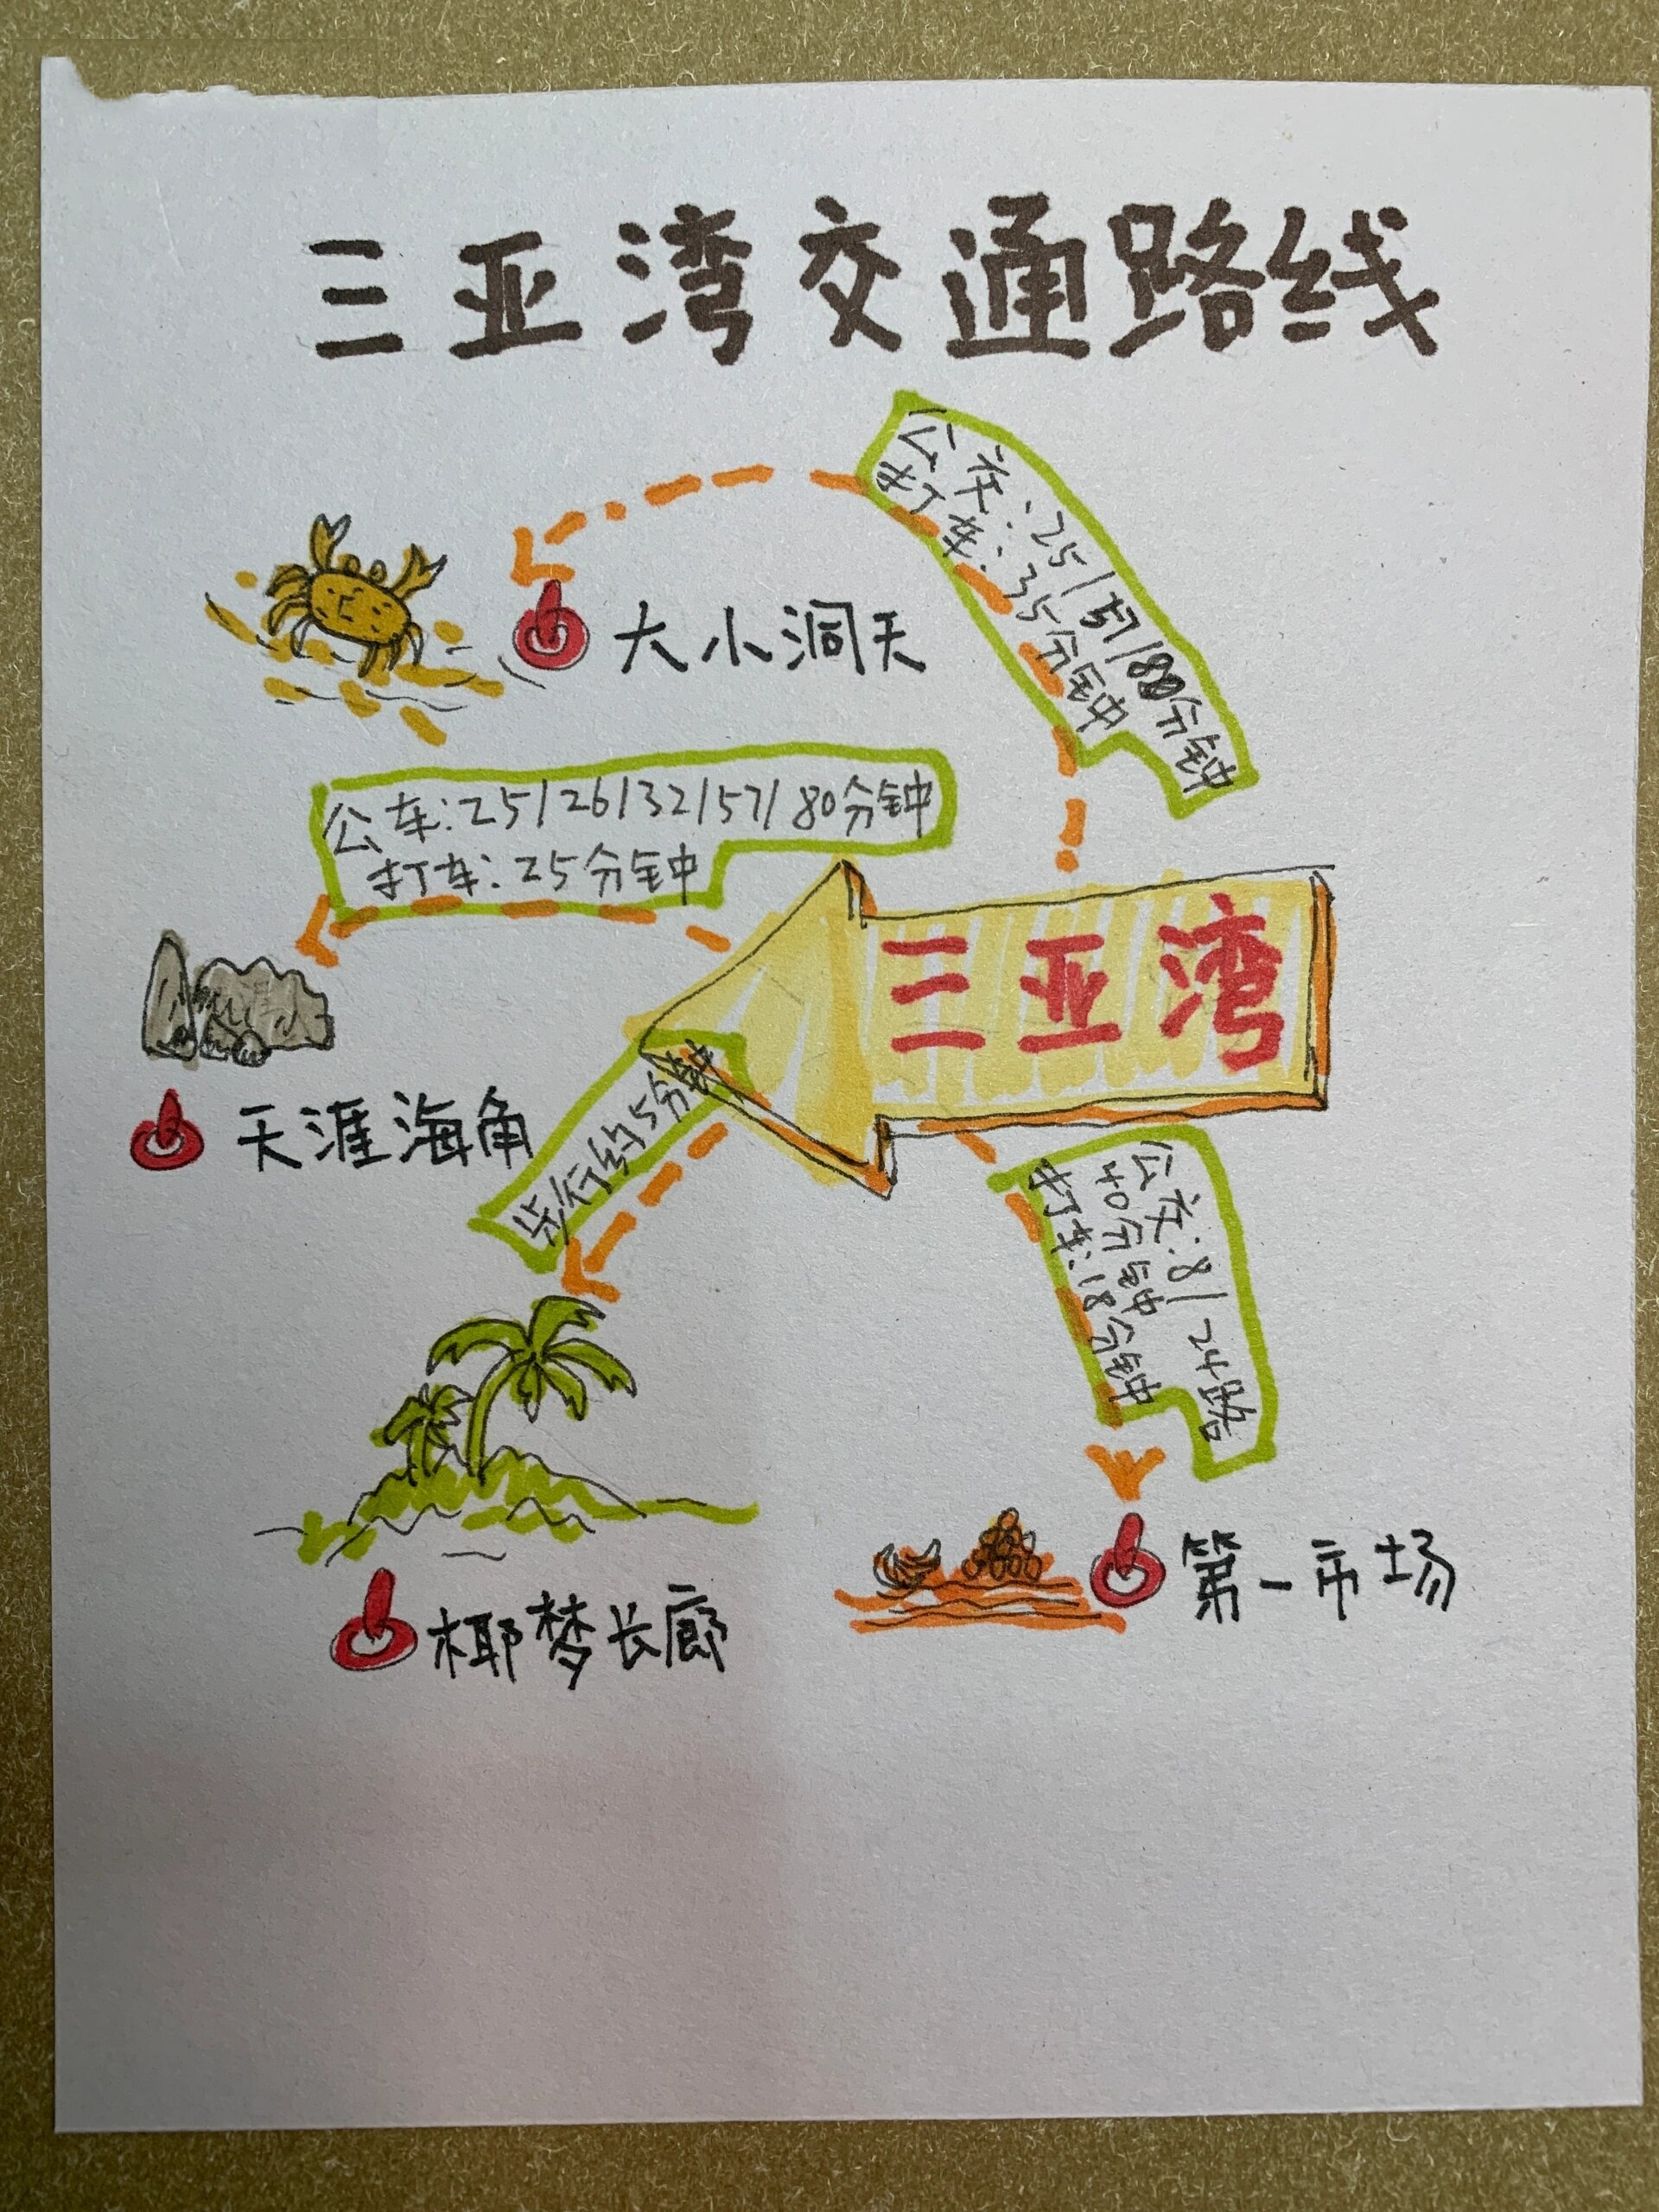 三亚湾交通路线
公交:25/57/80分钟
打车:35分钟
大小洞天
公车:25/26/32/57/80分钟
打车:25分钟
三亚湾
天涯海角
步行约5分钟
公交:8/24路
40分钟
打车:18分钟
第一市场
椰梦长廊